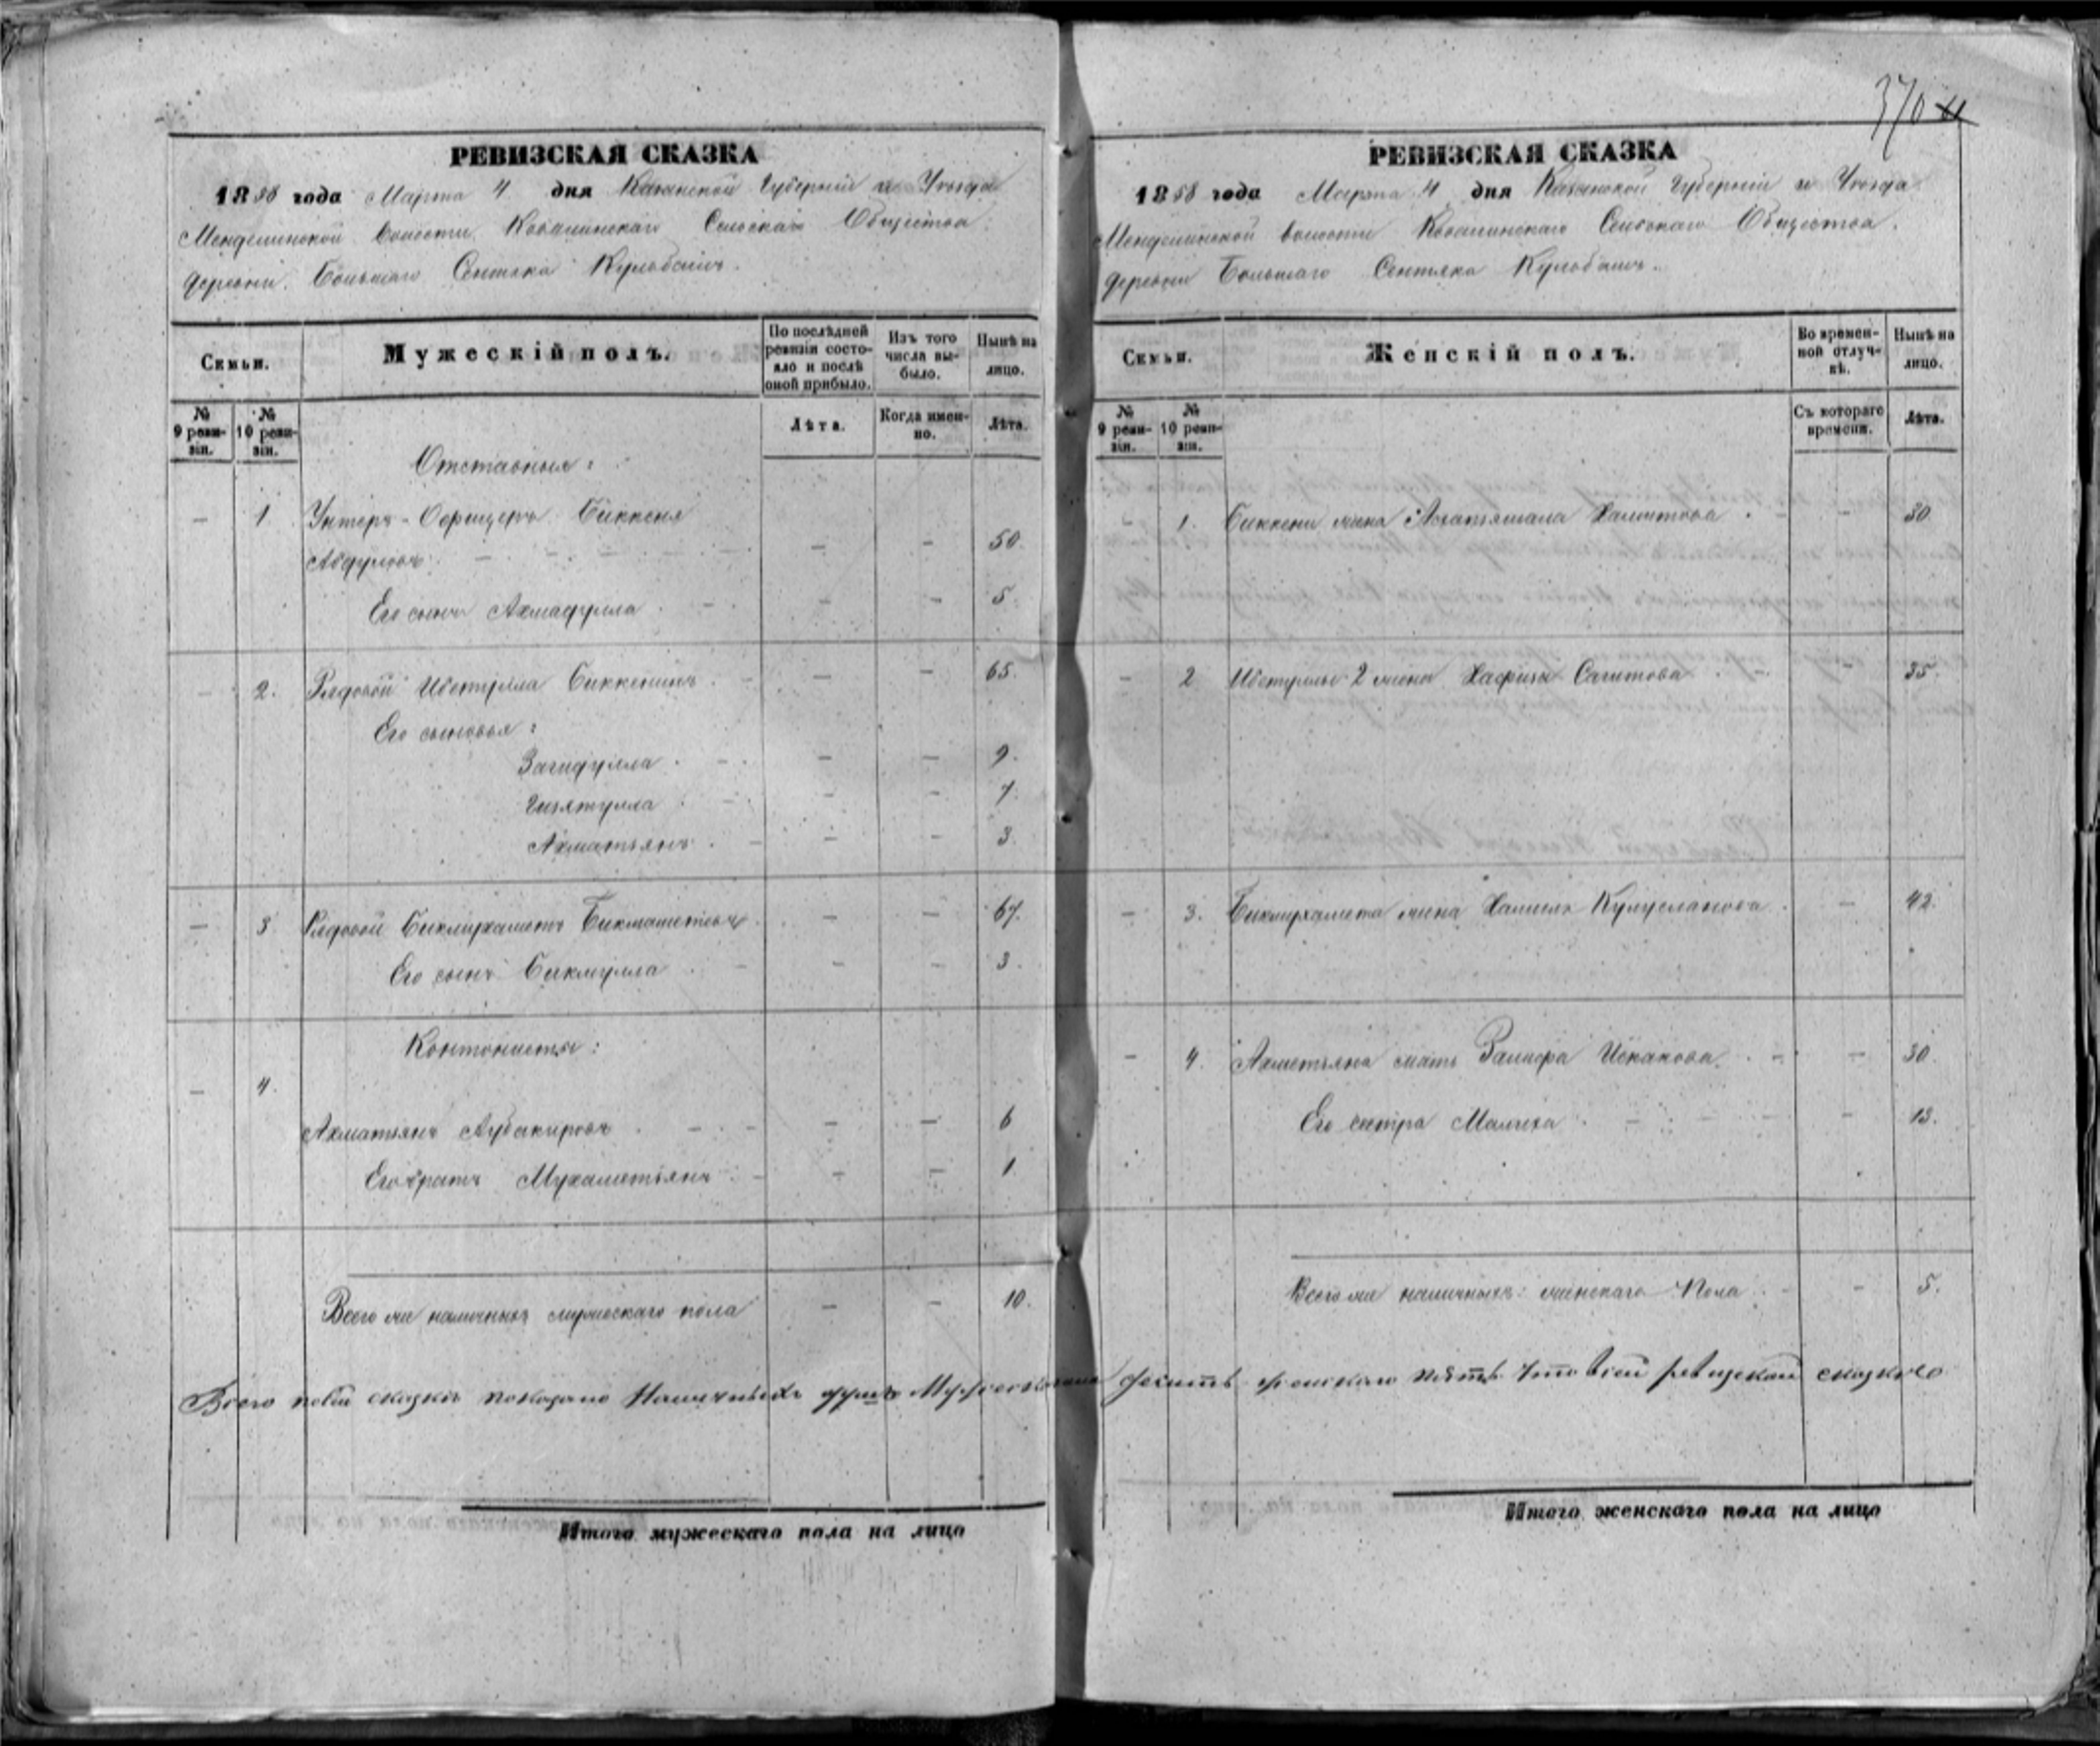 370
РЕВИЗСКАЯ СКАЗКА
1858 года Марта 4 дня Казанской Губерніи и Уѣзда
Менделинской Волости Ковалинскаго Сельскаго Общества
деревни Большаго Сентяка Кулбашъ.
Семьи.
Мужескій полъ.
По послѣдней ревизіи состояло и послѣ оной прибыло.
Изъ того числа выбыло.
Нынѣ на лицо.
№ 9 ревизіи.
№ 10 ревизіи.
Лѣта.
Когда именно.
Лѣта.
Отставные:
— 1 Унтеръ-Офицеръ Биккеня
Абдуловъ — — 50.
Его сынъ Ахмадулла — — 5.
— 2. Рядовой Ибетулла Биккенинъ — — 65.
Его сыновья:
Загидулла — — 9.
Гизятулла — — 7.
Ахматьянъ — — 3.
— 3 Рядовой Бикмухаметъ Бикмаметевъ — — 67.
Его сынъ Бикмулла — — 3.
Кантонисты:
— 4.
Ахматьянъ Аубакировъ — — 6
Его братъ Мухаметьянъ — — 1
Всего же наличныхъ мужескаго пола — — 10.
Всего по сей сказки показано Наличныхъ душъ Мужескаго
Итого мужескаго пола на лицо
РЕВИЗСКАЯ СКАЗКА
1858 года Марта 4 дня Казанской Губерніи и Уѣзда
Менделинской волости Ковалинскаго Сельскаго Общества.
деревни Большаго Сентяка Кулбашъ.
Семьи.
Женскій полъ.
Во временной отлучкѣ.
Нынѣ на лицо.
№ 9 ревизіи.
№ 10 ревизіи.
Съ котораго времени.
Лѣта.
1. Биккени жена Халитова — 30
— 2 Ибетуллы 2 жена Хафиза Сагитова — 35.
— 3. Бикмухамета жена — 42.
— 4. Ахметьяна мать Исхакова — 30.
Его сестра Малиха — 13.
Всего же наличныхъ женскаго Пола — 5.
десять женскаго пять Что в сей ревизской сказкѣ
Итого женскаго пола на лицо